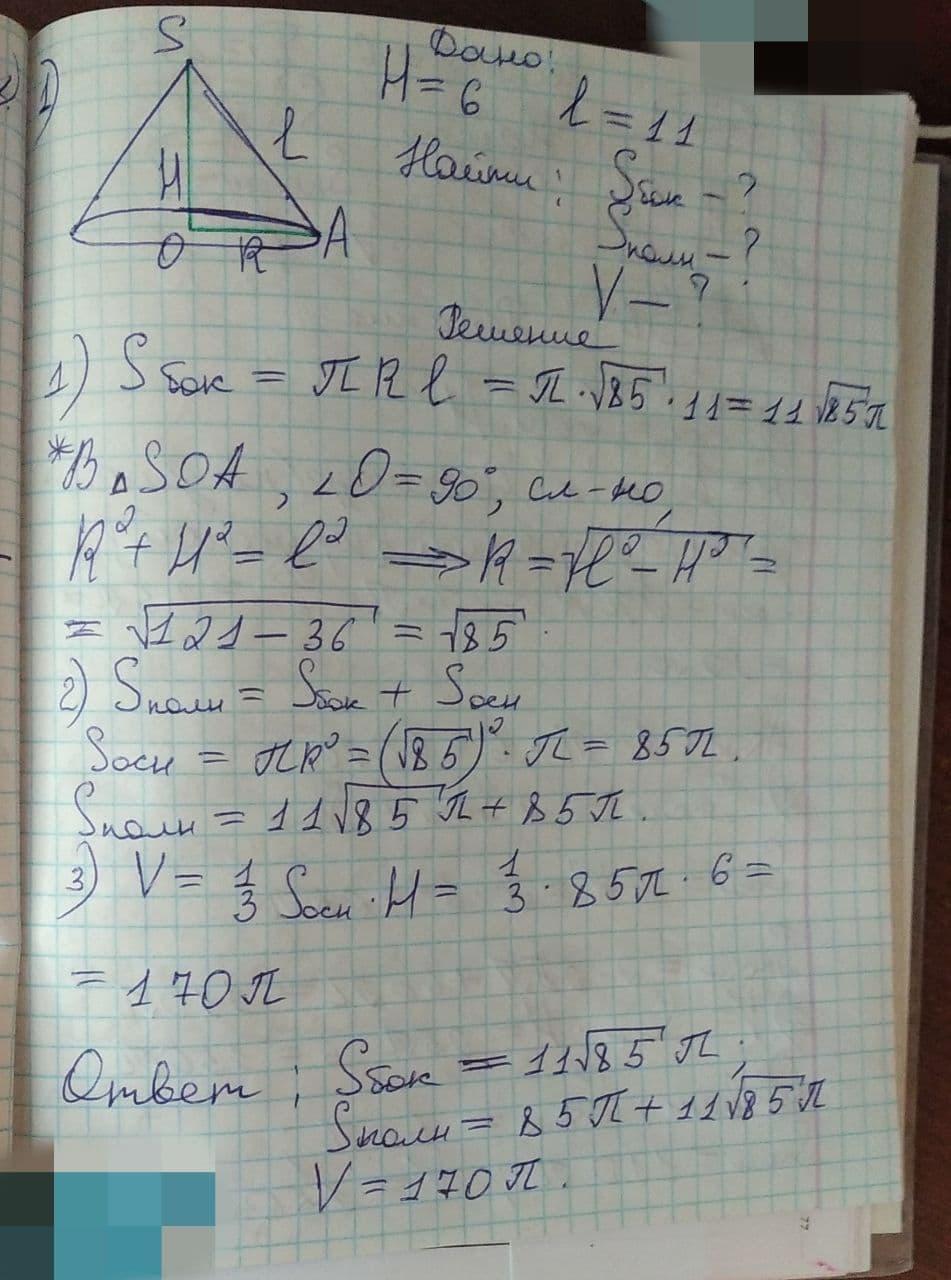 1)
S
H
l
O
R
A
Дано:
H = 6 l = 11
Найти: Sбок - ?
Sполн - ?
V - ?
Решение
1) Sбок = πRl = π · √85 · 11 = 11√85π
*В △SOA, ∠O = 90°, сл-но,
R² + H² = l² ⟹ R = √l² - H² =
= √121 - 36 = √85.
2) Sполн = Sбок + Sосн
Sосн = πR² = (√85)² · π = 85π.
Sполн = 11√85π + 85π.
3) V = 1/3 Sосн · H = 1/3 · 85π · 6 =
= 170π
Ответ: Sбок = 11√85π;
Sполн = 85π + 11√85π
V = 170π.